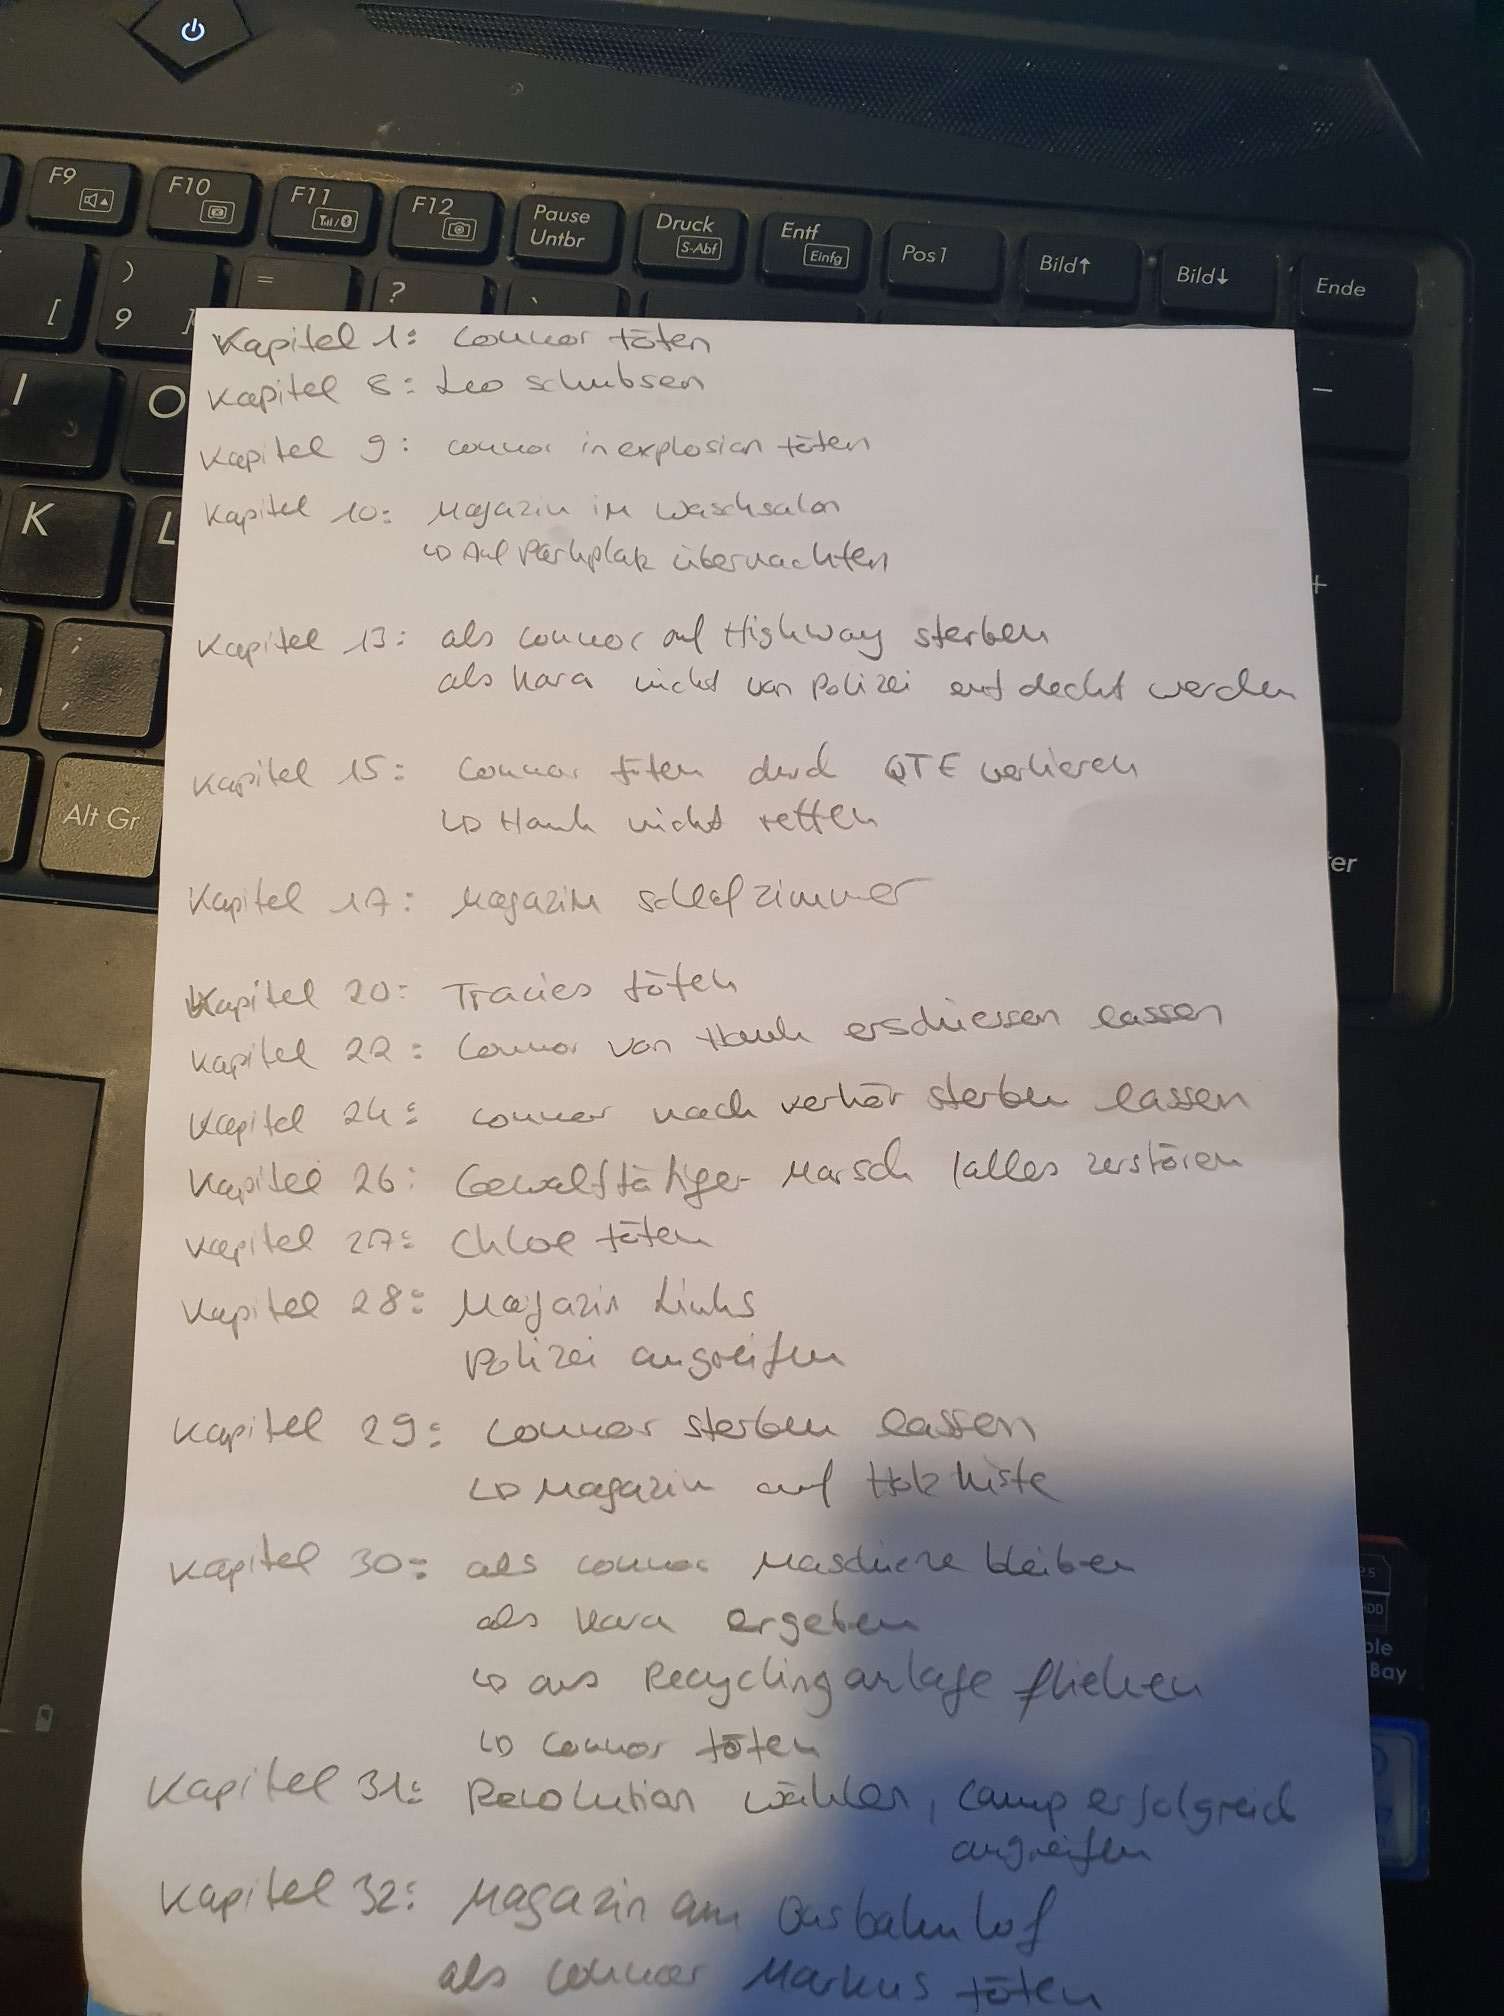 F9
F10
F11
F12
Pause
Untbr
Druck
S-Abf
Entf
Einfg
Pos1
Bild↑
Bild↓
Ende
)
9
[
]
=
?
`
I
O
K
L
;
,
Alt Gr
-
+
er
Kapitel 1: Connor töten
Kapitel 8: Leo schubsen
Kapitel 9: Connor in explosion töten
Kapitel 10: Magazin im Waschsalon
↳ Auf Parkplatz übernachten
Kapitel 13: als Connor auf Highway sterben
als Kara nicht von Polizei entdeckt werden
Kapitel 15: Connor töten durch QTE verlieren
↳ Hank nicht retten
Kapitel 17: Magazin Schlafzimmer
Kapitel 20: Tracies töten
Kapitel 22: Connor von Hank erschiessen lassen
Kapitel 24: Connor nach verhör sterben lassen
Kapitel 26: Gewalttätiger Marsch /alles zerstören
Kapitel 27: Chloe töten
Kapitel 28: Magazin Links
Polizei angreifen
Kapitel 29: Connor sterben lassen
↳ Magazin auf Holzkiste
Kapitel 30: als Connor Maschiene bleiben
als Kara ergeben
↳ aus Recyclinganlage fliehen
↳ Connor töten
Kapitel 31: Revolution wählen, Camp erfolgreich
angreifen
Kapitel 32: Magazin am Busbahnhof
als Connor Markus töten
ple
Bay